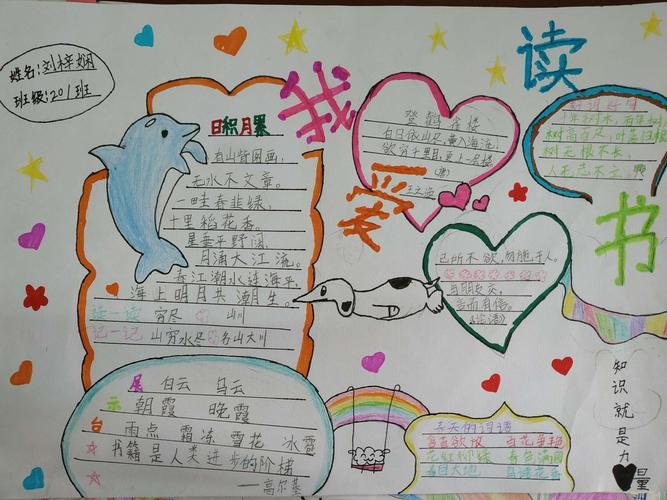 姓名:刘梓娴
班级:201班
我爱读书
日积月累
有山皆图画,
无水不文章。
一畦春韭绿,
十里稻花香。
星垂平野阔,
月涌大江流。
春江潮水连海平,
海上明月共潮生。
读一读 穷尽 山川
记一记 山穷水尽 名山大川
登鹳雀楼
白日依山尽,黄入海流,
欲穷千里目,更上一层楼
(唐)
王之涣
好词好句
树高百尺,叶落归根
树无根不长,
人无志不立
己所不欲,勿施于人。
与朋友交,
言而有信。
(论语)
展示台
白云 乌云
朝霞 晚霞
雨点 霜冻 雪花 冰雹
书籍是人类进步的阶梯
——高尔基
春天的词语
含苞欲放 百花争艳
花红柳绿 春色满园
春回大地
知识就是力量